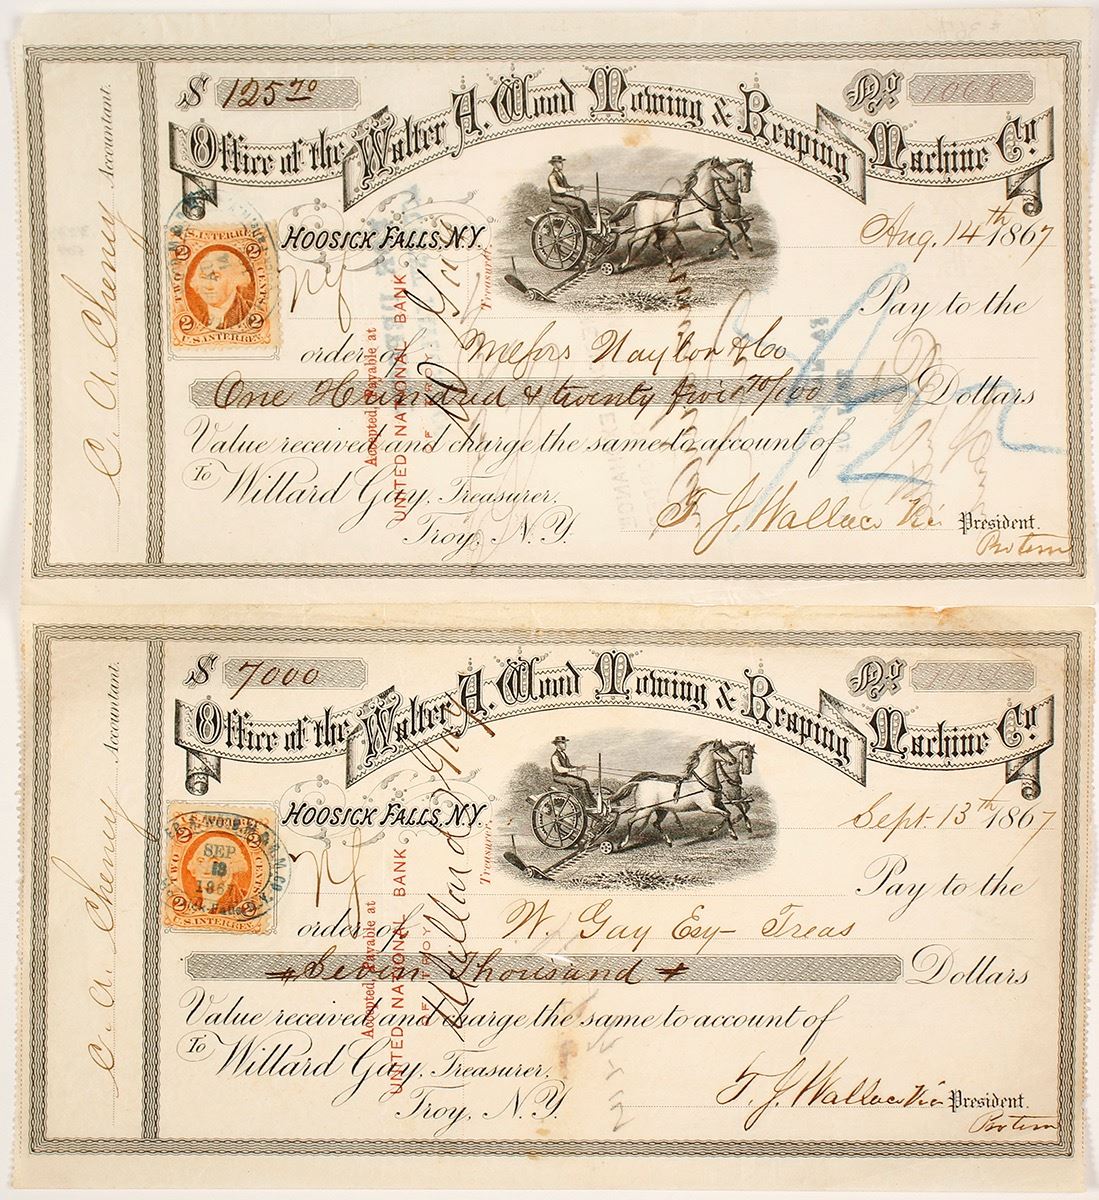 $ 125 70 No 1068
Office of the Walter A. Wood Mowing & Reaping Machine Co.
HOOSICK FALLS, N.Y. Aug. 14th 1867
Pay to the
order of Messrs Naylor & Co
One Hundred & twenty five 70/100 Dollars
Value received and charge the same to account of
To Willard Gay, Treasurer.
Troy, N.Y.
T. J. Wallace Vice President.
Pro tem
C. A. Cheney Accountant.
U.S. INTER. REV.
2 2
TWO CENTS
2 2
U.S. INTER. REV.
Accepted, Payable at
UNITED NATIONAL BANK
OF TROY
Treasurer.
$ 7000 No
Office of the Walter A. Wood Mowing & Reaping Machine Co.
HOOSICK FALLS, N.Y. Sept. 13th 1867
Pay to the
order of W. Gay Esq - Treas
Seven Thousand Dollars
Value received and charge the same to account of
To Willard Gay, Treasurer.
Troy, N.Y.
T. J. Wallace Vice President.
Pro tem
C. A. Cheney Accountant.
2 2
TWO CENTS
SEP
13
1867
2 2
U.S. INTER. REV.
Accepted, Payable at
UNITED NATIONAL BANK
OF TROY
Willard Gay
Treasurer.